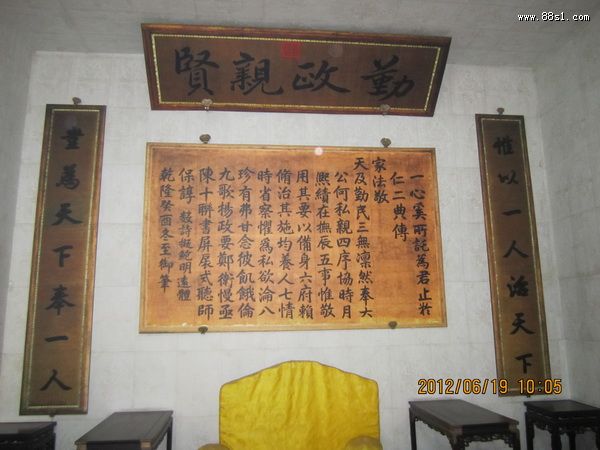 www.88s1.com
勤政親賢
惟以一人治天下
一心奚所託為君止於
仁二典傳
家法敬
天及勤民三無凜然奉大
公何私親四序協時月
熙績在撫辰五事惟敬
用其要以備身六府賴
脩治其施均養人七情
時省察懼為私欲淪八
珍有弗甘念彼飢餓倫
九歌揚政要鄭衛慢亟
陳十聯書屏扆式聽師
保諄 數詩擬鮑明遠體
乾隆癸酉冬至御筆
豈為天下奉一人
2012/06/19 10:05